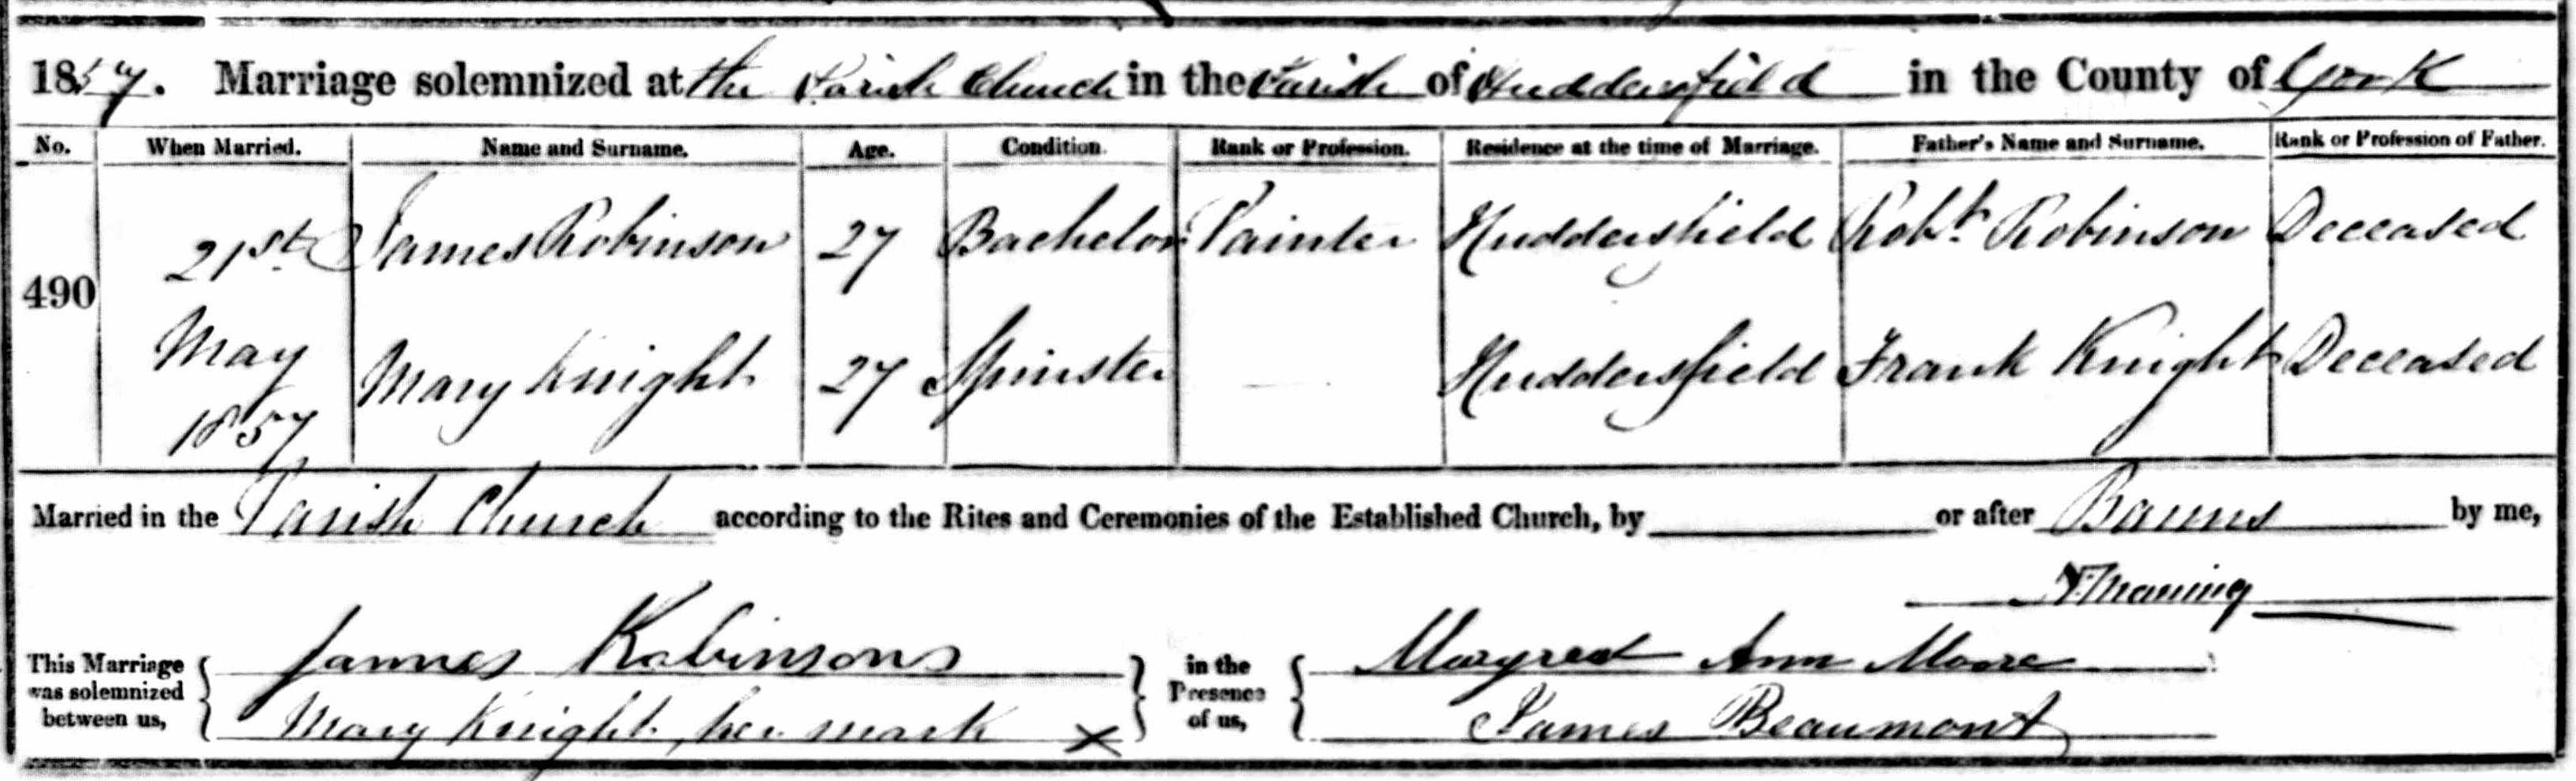 1857. Marriage solemnized at the Parish Church in the Parish of Huddersfield in the County of York
No. When Married. Name and Surname. Age. Condition. Rank or Profession. Residence at the time of Marriage. Father's Name and Surname. Rank or Profession of Father.
21st James Robinson 27 Bachelor Painter Huddersfield Robt. Robinson Deceased
490
May Mary Knight 27 Spinster — Huddersfield Frank Knight Deceased
1857
Married in the Parish Church according to the Rites and Ceremonies of the Established Church, by or after Banns by me,
This Marriage was solemnized between us,
James Robinson
Mary Knight, her mark X
in the Presence of us,
Margred Ann Moore
James Beaumont